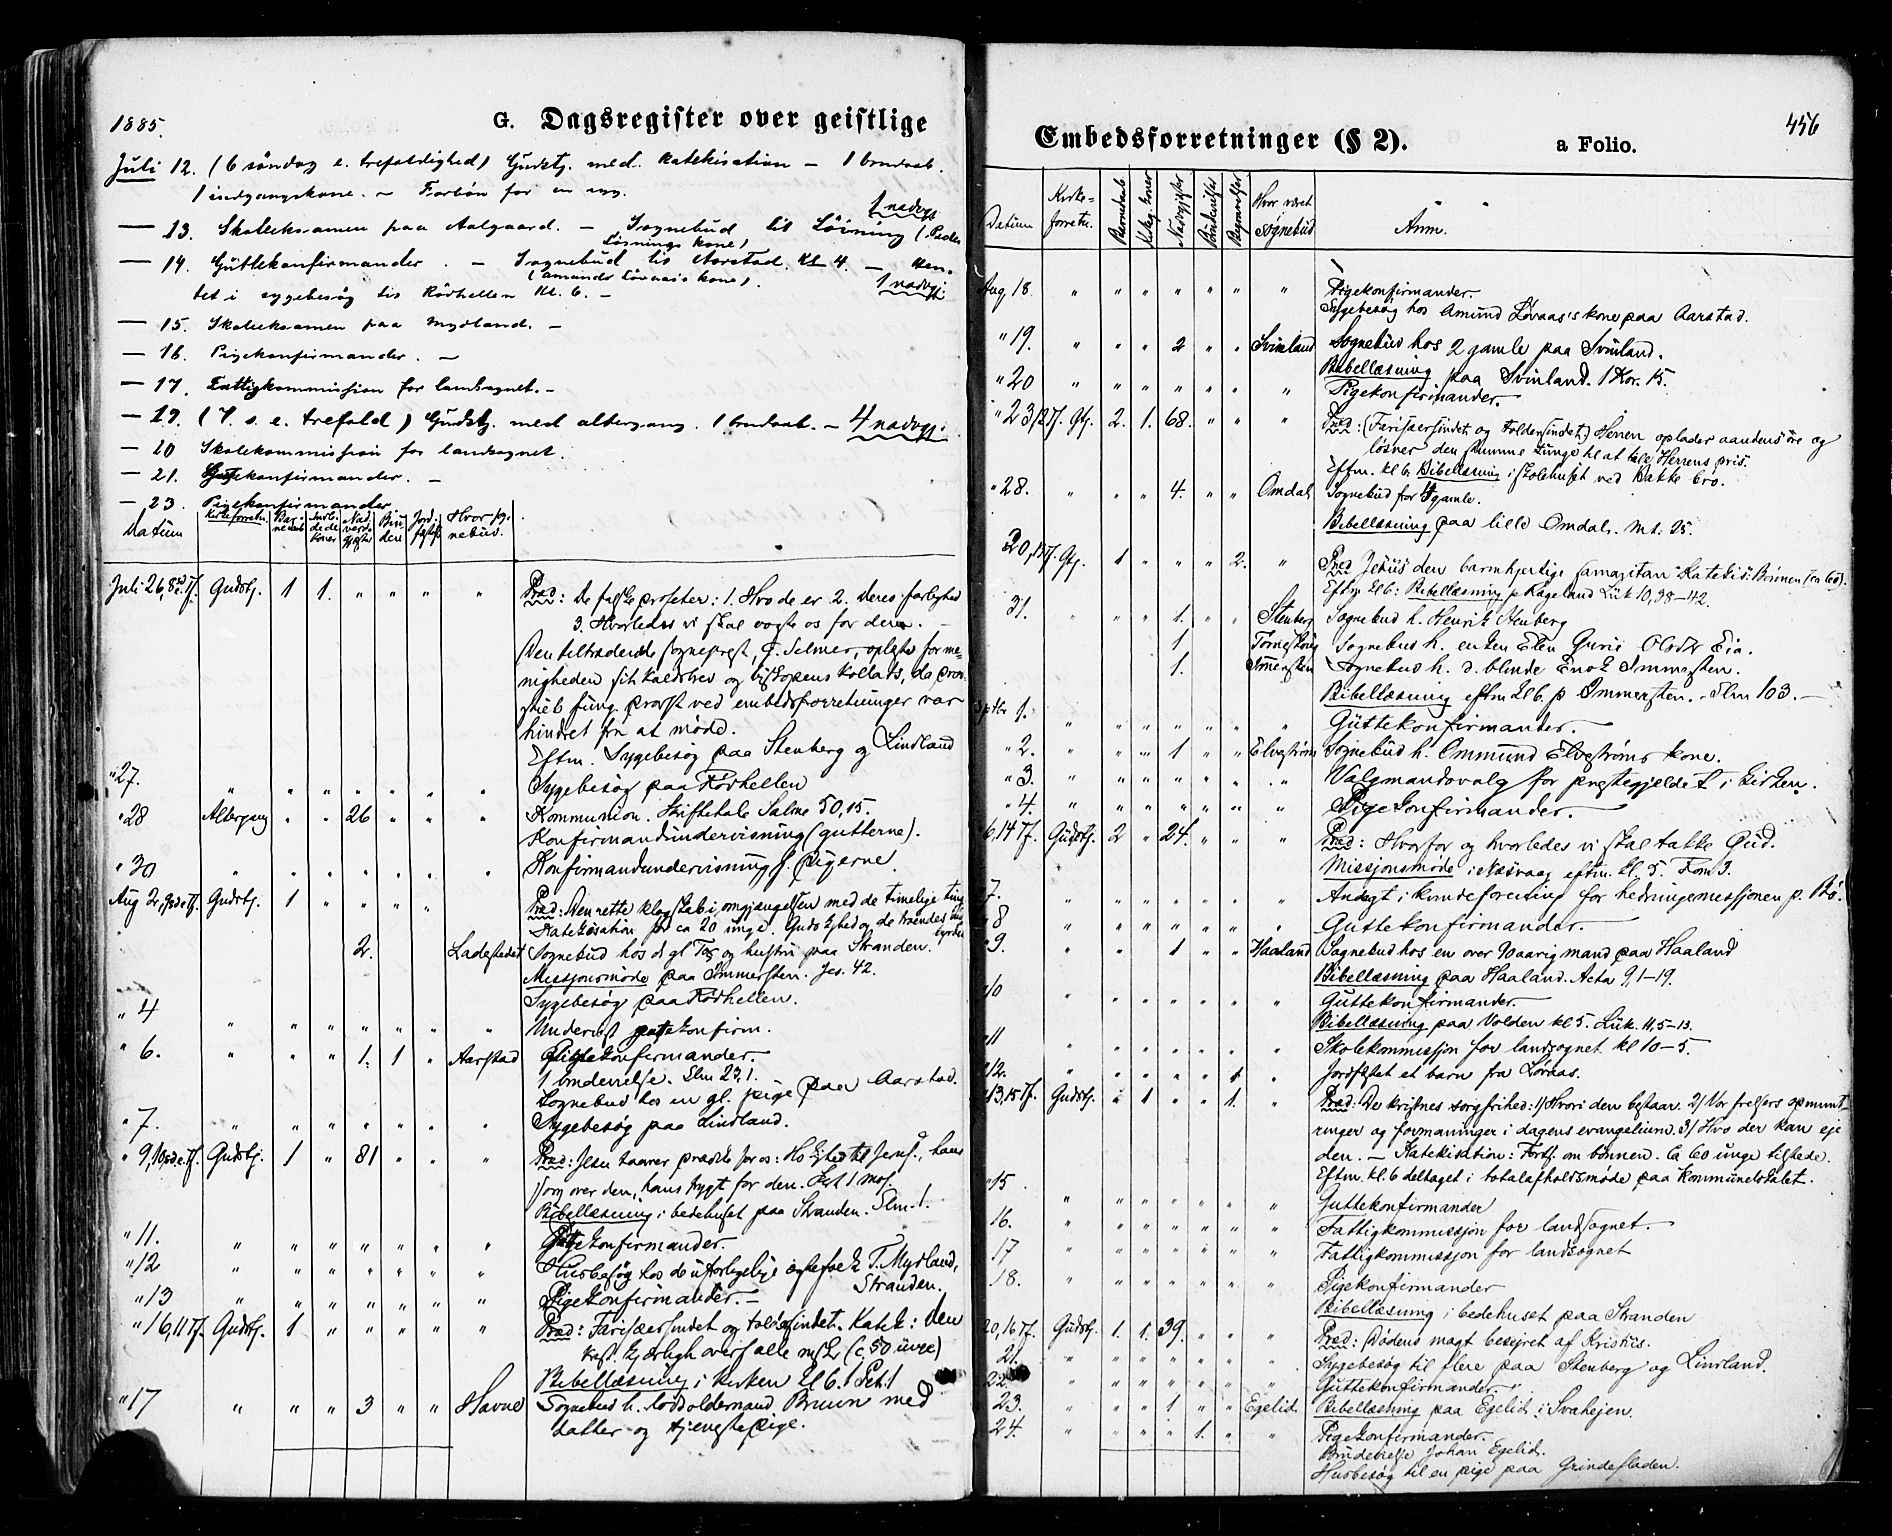 1885.
G. Dagsregister over geistlige
Juli 12. (6 söndag e. trefoldighed) Gudstj. med katekisation — 1 barnedaab.
1 indgangskone. — Forbön for en syg.
1 nadvgj.
— 13. Skoleeksamen paa Aalgaard. — Sognebud til Lövning (Peder
Lövnings kone)
— 14. Guttekonfirmander. — Sognebud til Aarstad. Kl 4. — Hen-
(Amunds Lövaas's kone).
tet i sygebesög til Rödhellen Kl. 6. — 1 nadvgj.
— 15. Skoleeksamen paa Mydland. —
— 16. Pigekonfirmander. —
— 17. Fattigkommission for landsognet. —
— 19. (7. s. e. trefold) Gudstj. med altergang. 1 barnedaab. — 4 nadvgj.
— 20 Skolekommission for landsognet.
— 21. Guttekonfirmander. —
— 23. Pigekonfirmander
Datum Kirkeforretn. Bar-nedaab Indledede koner Nadverdgjester Bru-devi Jord-fæstels Hvor sog-nebud.
Juli 26, 8 s.e.Tf. Gudstj. 1 1. " " " " Præd: De falske profeter: 1. Hvo de er 2. Deres farlighed
3. Hvorledes vi skal vogte os for dem. —
Den tiltrædende sogneprest, J. Selmer, oplæste for me-
nigheden sit kaldsbrev og biskopens kollats, da prov-
stiets fung. provst ved embedsforretninger var
hindret fra at møde.
Eftm. Sygebesøg paa Stenberg og Lindland
" 27. " " " " " " " Sygebesøg paa Rødhellen
" 28 Altergang " " 26 " " " Kommunion. Skriftetale Salme 50,15.
Konfirmandundervisning (gutterne).
" 30 " " " " " " " Konfirmandundervisning f. pigerne.
Aug 2, 9 s.e.Tf. Gudstj. 1 " " " " Præd: Den rette klogskab i omgjængelsen med de timelige ting
Katekisation for ca 20 unge. Guds
2. Ladestedet Sognebud hos d. gl. og hustru paa Stranden.
Missjonsmøde paa Immersten. Jes. 42.
Sygebesøg paa Rødhellen.
" 4 " " " " " " " Undervist guttekonfirm.
" 6. " " " 1. 1 " Aarstad Pigekonfirmander.
1 brudevielse. Slm 23,1.
Sognebud hos en gl. pige paa Aarstad.
" 7. " " " " " " " Sygebesøg paa Lindland.
" 9, 10 s.e.Tf. Gudstj. 1 " 81 " " " Præd: Jesu taarer prædike for os: Hs kjærlhed til Jerus., hans
sorg over den, hans frygt for den. Skrt 1 Mos.
Bibellæsning i bedehuset paa Stranden. Slm. 1.
" 11. " " " " " " " Guttekonfirmander.
" 12 " " " " " " " Husbesøg hos de uforligelige ægtefolk T. Mydland,
Stranden.
" 13 " " " " " " " Pigekonfirmander. —
" 16, 11 Tf. Gudstj. 1 " " " " " Præd: Farisæersindet og toldersindet. Katek: Den
krist. kjærligh over f alle msk (c. 50 unge)
Bibellæsning i kirken kl 6. 1 Pet. 1
" 17 " " " 3 " " Havne Sognebud h. lodsoldermand Bruun med
datter og tjenestepige.
Embedsforretninger (§ 2). a Folio. 456
Datum Kirke-forretn. Barnedaab Indleg. koner Nadvgjester Brudevielse Begravelser Hvor været sognebud Anm.
Aug 18. " " " " " " " Pigekonfirmander.
Sygebesøg hos Amund Løvaas's kone paa Aarstad.
" 19. " " " 2 " " Svinland Sognebud hos 2 gamle paa Svinland.
Bibellæsning paa Svinland. 1 Kor. 15.
" 20 " " " " " " " Pigekonfirmander.
" 23, 12 Tf. Gtj. 2. 1. 68. " " " Præd: (Farisæersindet og toldersindet) Herren oplader aandens øre og
løsner den stumme tunge til at tale Herrens pris.
Eftm. kl 6. Bibellæsning i skolehuset ved Bakke bro.
" 28. " " " 4. " " Omdal Sognebud for 4 gamle.
Bibellæsning paa lille Omdal. Mt. 25.
30, 13 Tf. Gtj. 1 " " " 2. " Præd Jesus den barmhjertige samaritan. Katekis: Bønnen (ca 60).
Eftm kl 6: Bibellæsning p Rageland Luk 10,38–42.
31. " " " 1. " " Stenberg Sognebud h. Henrik Stenberg
1 Sognebud h. enken Elen Gurie Olsdtr Eia.
1. Immersten Sognebud h. d. blinde Enok Immersten.
Bibellæsning eftm kl 6 p Immersten. — Slm 103. —
Septbr 1. " " " " " " " Guttekonfirmander.
" 2. " " " 1 " " Elvestrøm Sognebud h. Ommund Elvestrøms kone.
" 3. " " " " " " " Valgmandsvalg for prestegjeldet i kirken.
" 4. " " " " " " " Pigekonfirmander.
6, 14 Tf. Gudstj. 2 " 24. " " " Præd: Hvorfor og hvorledes vi skal takke Gud.
Missjonsmøde i Næsvaag eftm. kl. 5. Fom 3.
7. " " " " " " " Andagt i kvindeforening for hedningemissjonen p. Bø.
" 8 " " " " " " " Guttekonfirmander.
" 9. " " " 1 " " Haaland Sognebud hos en over 90aarig mand paa Haaland
Bibellæsning paa Haaland. Acta 9,1–19.
" 10 " " " " " " " Guttekonfirmander.
Bibellæsning paa Volden kl 5. Luk. 11,5–13.
" 11 " " " " " " " Skolekommissjon for landsognet kl 10–5.
" 12. " " " " " 1 " Jordfæstet et barn fra Løvaas.
" 13, 15 Tf. Gudstj. " 1 " " 1. " Præd: De kristnes sorgfrihed: 1/ Hvori den bestaar. 2/ Vor frelsers opmunt-
ringer og formaninger i dagens evangelium. 3/ Hvo der kan eje
den. — Katekisation: Forts. om bønnen. Ca 60 unge tilstede.
Eftm. kl. 6 deltaget i totalafholdsmøde paa kommunelokalet.
" 15 " " " " " " " Guttekonfirmander
16. " " " " " " " Fattigkommissjon for landsognet.
17 " " " " " " " Fattigkommissjon for landsognet
18. " " " " " " " Pigekonfirmander
Bibellæsning i bedehuset paa Stranden
20, 16 Tf. Gudstj. 1. 1. 39. " " " Præd: Dødens magt beseiret af Kristus.
21. " " " " " " " Sygebesøg til flere paa Stenberg og Lindland.
22. " " " " " " " Guttekonfirmander.
23. " " " 1 " " Egelid. Bibellæsning paa Egelid i Svahejen.
24. " " " " 1. " " Pigekonfirmander.
Brudevielse Johan Egelid.
Husbesøg til en pige paa Grindefladen.